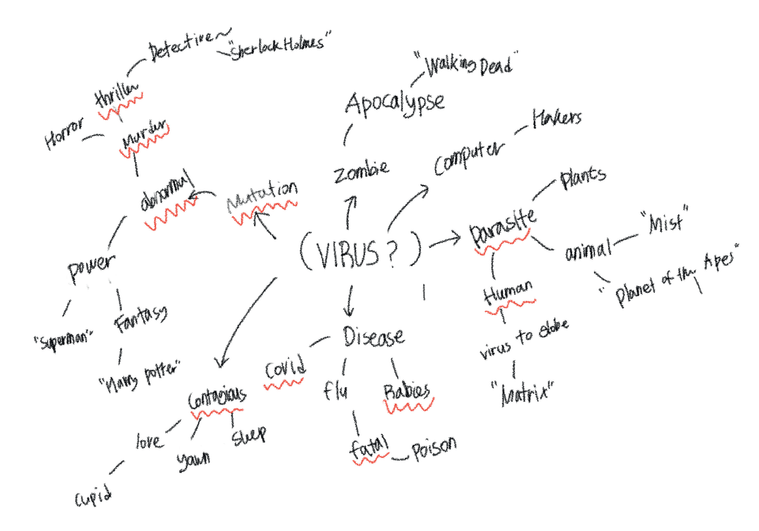 Detective
"Sherlock Holmes"
thriller
Horror
Murder
abnormal
Mutation
power
"Superman"
Fantasy
"Harry potter"
"Walking Dead"
Apocalypse
Zombie
Computer
Hakers
(VIRUS?)
Parasite
Plants
animal
"Mist"
"Planet of the Apes"
Human
virus to globe
"Matrix"
Disease
Covid
flu
Rabies
fatal
Poison
Contagious
love
yawn
sleep
cupid